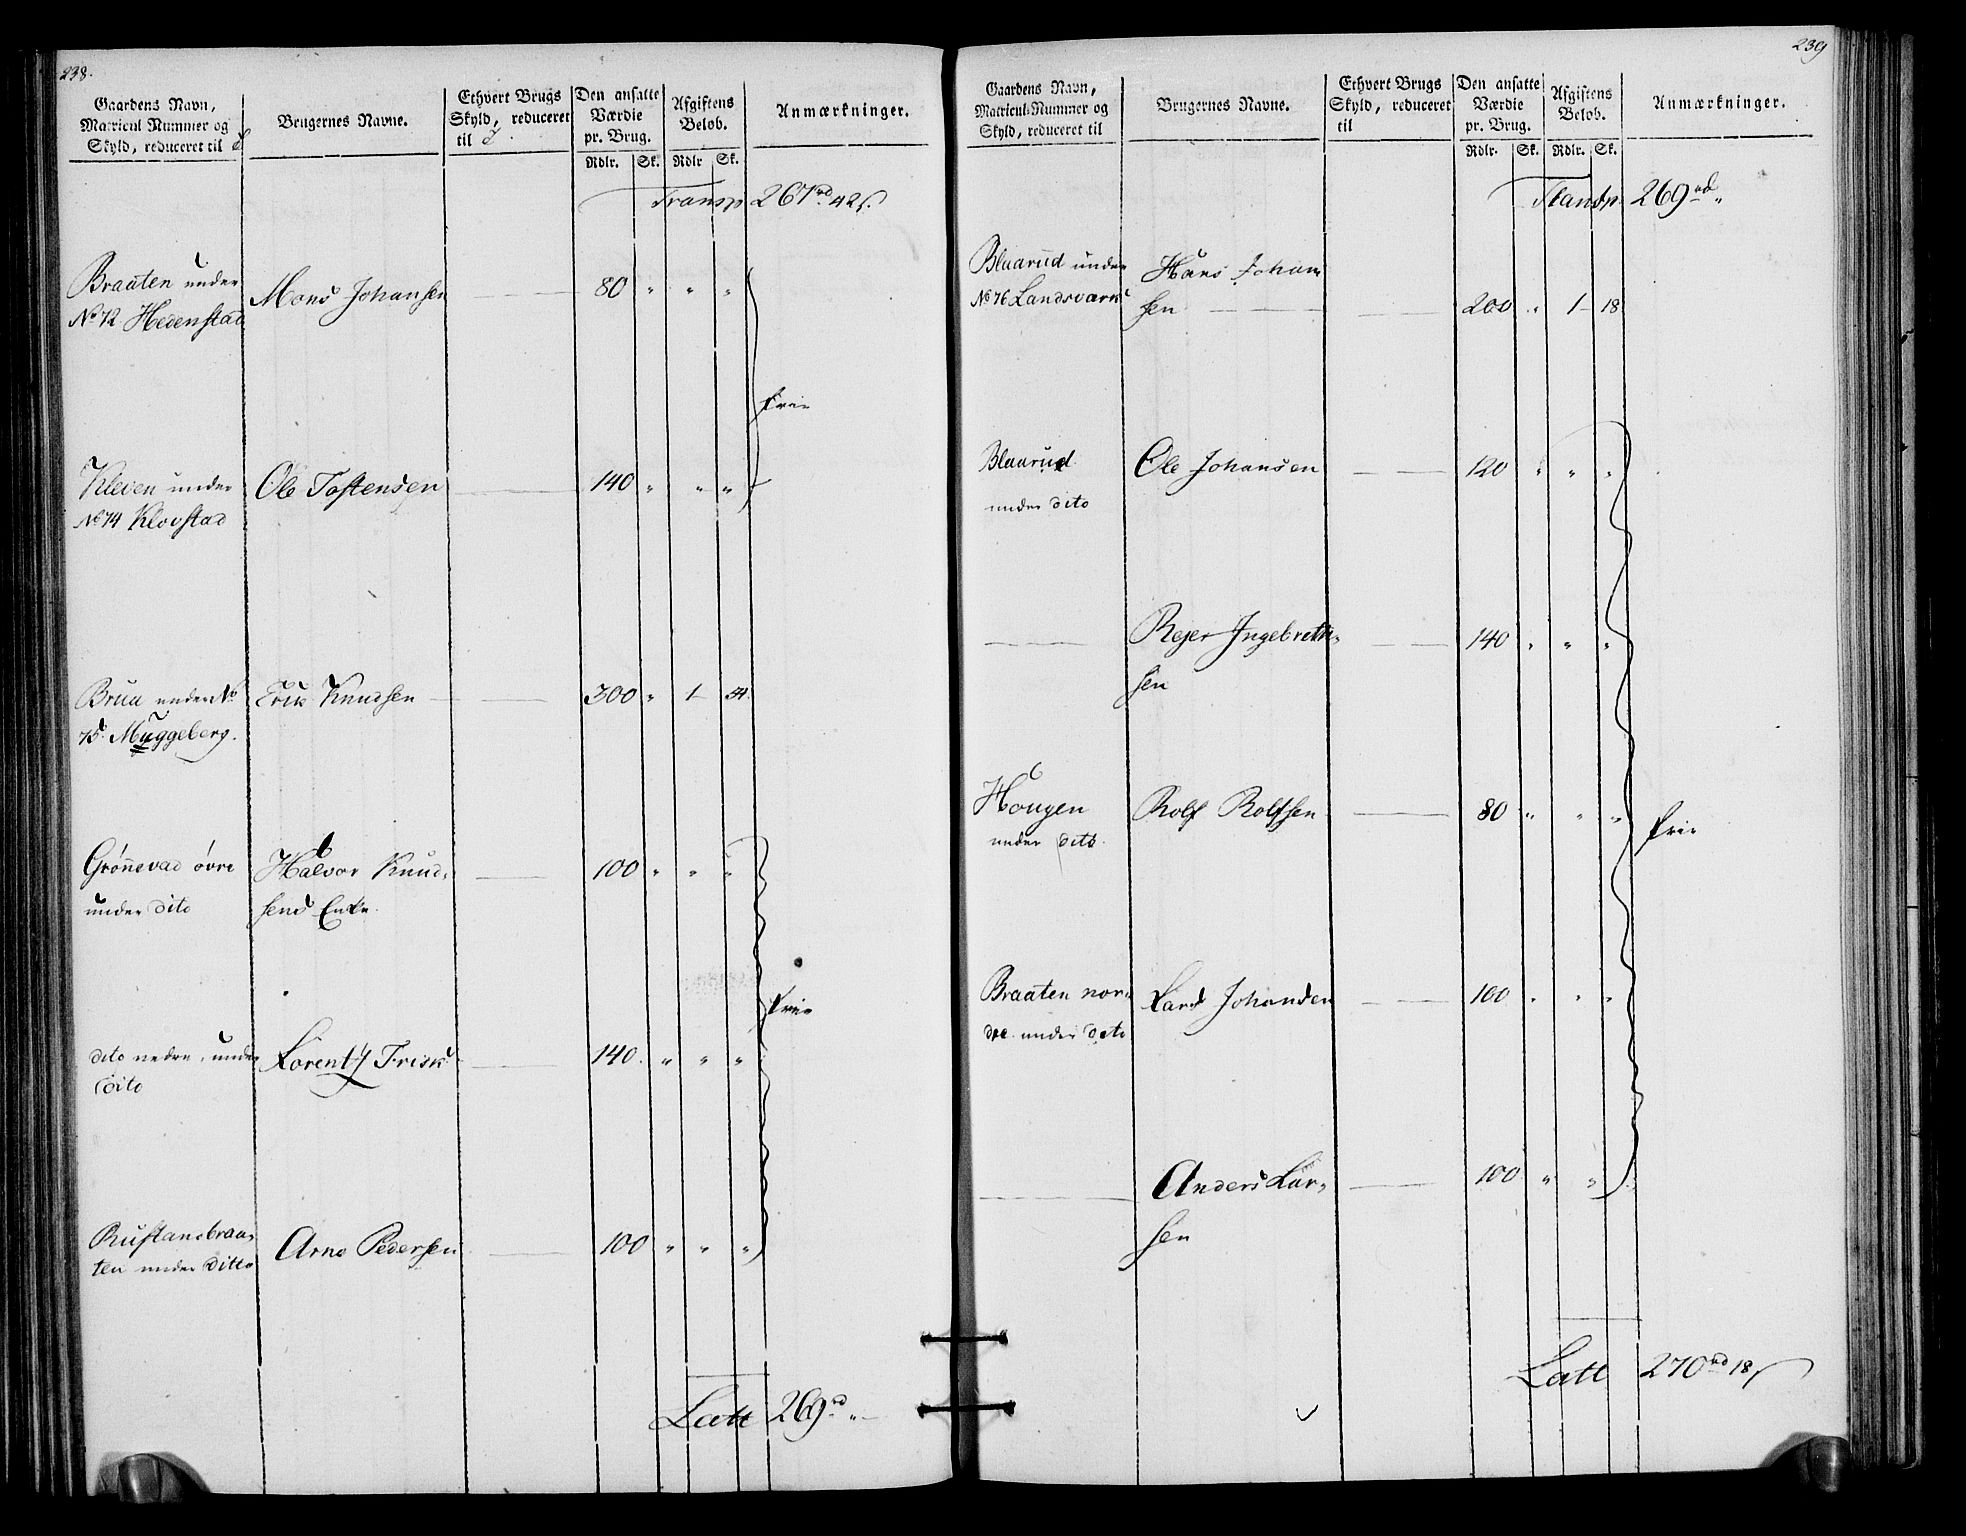 238.
Gaardens Navn, Matricul Nummer og Skyld, reduceret til
Brugernes Navne.
Ethvert Brugs Skyld, reduceret til
Den ansatte Værdie pr. Brug.
Afgiftens Beløb.
Anmærkninger.
Rdlr. Sk. Rdlr Sk.
Transp 267 rd 42 s.
Braaten under Mons Johansen 80 " " "
No 72 Hedenstad
Frie
Kleven under Ole Tostensen 140 " " "
No 74 Klovstad
Brua under No Erik Knudsen 300 " 1 54.
75. Muggeberg.
Grønnevad øvre Halvor Knud- 100 " " "
under dito sens Enke
Frie
dito nedre, under Lorentz Frisk 140. " " "
dito
Rustansbraa- Arne Pedersen 100 " " "
ten under ditto
Latt 269 rd "
239
Gaardens Navn, Matricul-Nummer og Skyld, reduceret til
Brugernes Navne.
Ethvert Brugs Skyld, reduceret til
Den ansatte Værdie pr. Brug.
Afgiftens Beløb.
Anmærkninger.
Rdlr. Sk. Rdlr. Sk.
Transp. 269 rd "
Blaarud under Hans Johan-
No 76 Landsværk sen 200 " 1 18
Blaarud Ole Johansen 120 " " "
under dito
Rejer Ingebreth- 140 " " "
sen
Hougen Rolf Rolfsen 80 " " "
under dito.
Frie
Braaten nor- Lars Johansen 100 " " "
dre under dito
Anders Lar- 100 " "
sen
Latt 270 rd 18 s